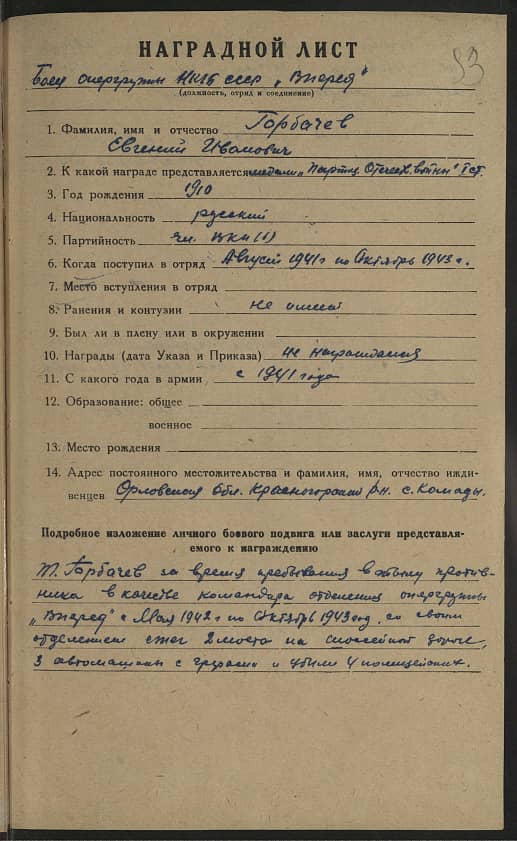 53
НАГРАДНОЙ ЛИСТ
Боец опергруппы НКГБ СССР „Вперед"
(должность, отряд и соединение)
1. Фамилия, имя и отчество Горбачев
Евгений Иванович
2. К какой награде представляется медали „Партиз. Отечеств. войны" I ст.
3. Год рождения 1910
4. Национальность русский
5. Партийность чл. ВКП(б)
6. Когда поступил в отряд Август 1941 г по Октябрь 1943 г.
7. Место вступления в отряд
8. Ранения и контузии не имеет
9. Был ли в плену или в окружении
10. Награды (дата Указа и Приказа) не награждался
11. С какого года в армии с 1941 года
12. Образование: общее
военное
13. Место рождения
14. Адрес постоянного местожительства и фамилия, имя, отчество ижди-
венцев Орловская обл. Красногорский р-н. с.
Подробное изложение личного боевого подвига или заслуги представля-
емого к награждению
Т. Горбачев за время пребывания в тылу против-
ника в качестве командира отделения опергруппы
„Вперед" с Мая 1942 г по Октябрь 1943 год, со своим
отделением сжег 2 моста на шоссейной дороге,
3 автомашины с грузами и убили 4 полицейских.